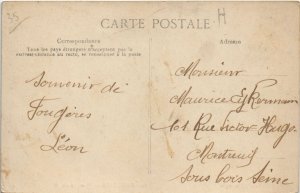 35
H
CARTE POSTALE
Correspondance
Tous les pays étrangers n'acceptent pas la
correspondance au recto, se renseigner à la poste
Adresse
Souvenir de
Fougères
Léon
Monsieur
Maurice
61 Rue Victor Hugo
Montreuil
Sous bois Seine